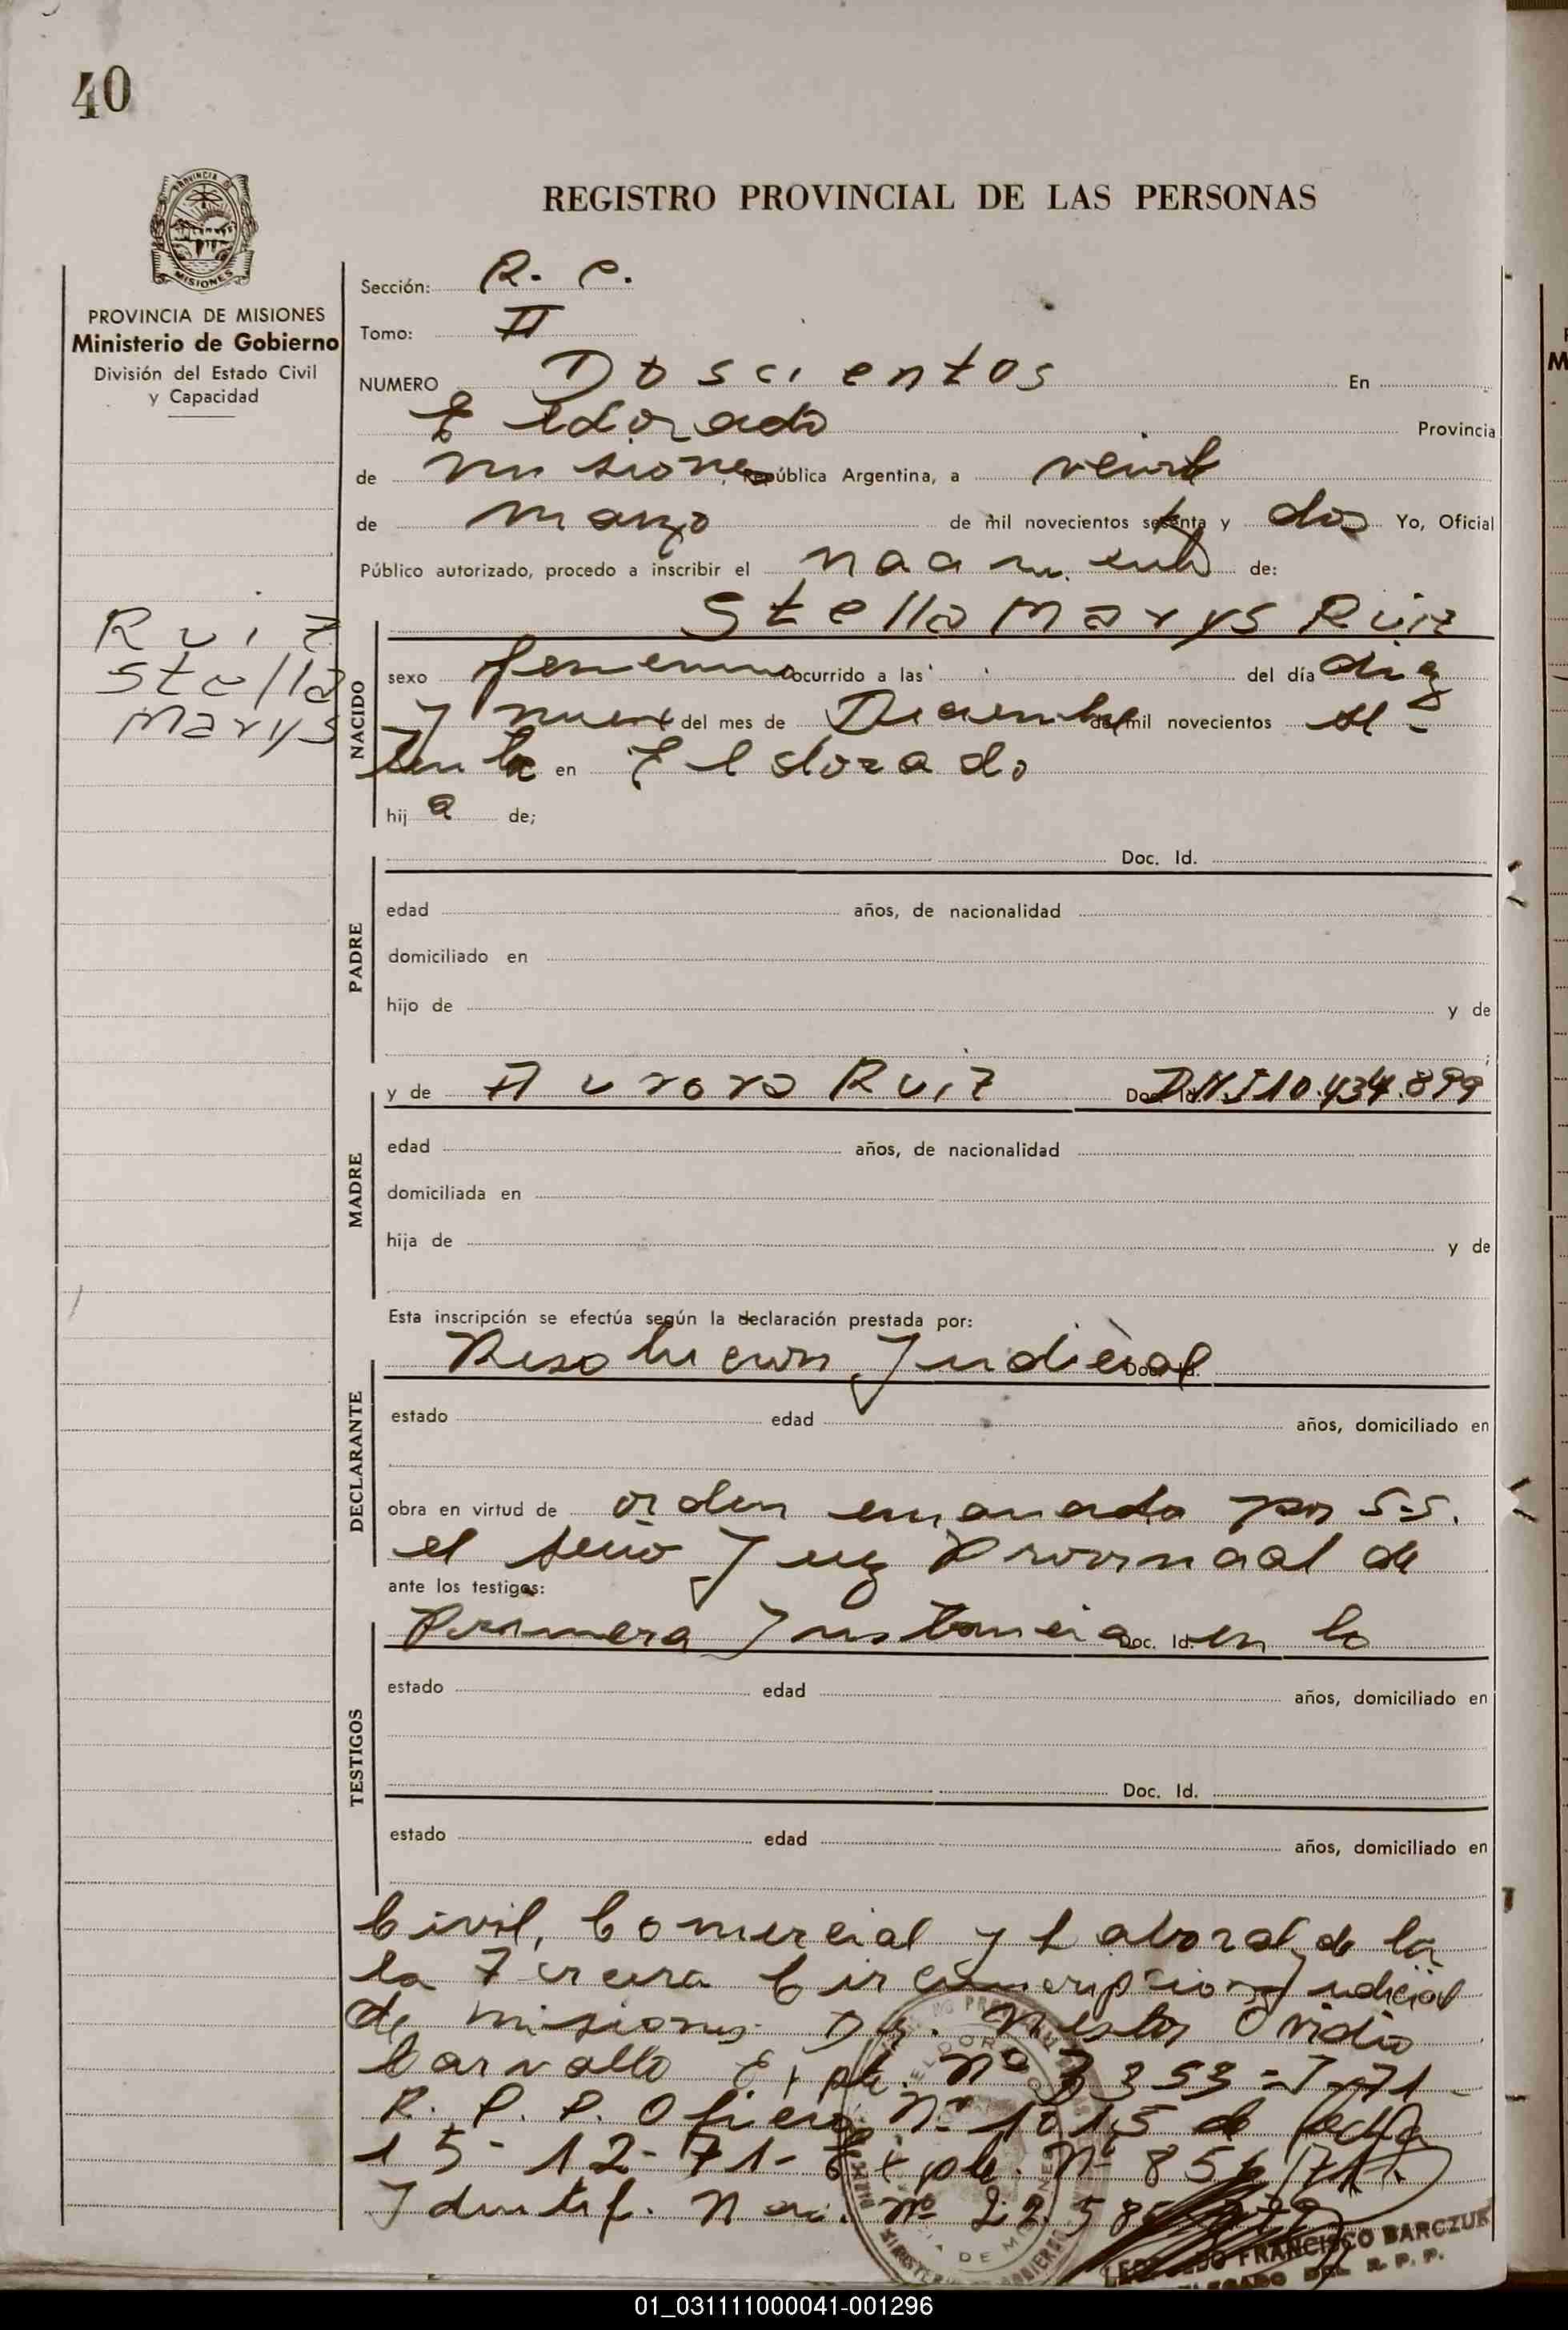 40
REGISTRO PROVINCIAL DE LAS PERSONAS
PROVINCIA DE MISIONES
Ministerio de Gobierno
División del Estado Civil
y Capacidad
Ruiz
Stella
Marys
Sección: R. C.
Tomo: II
NUMERO Doscientos En
Eldorado Provincia
de Misiones, República Argentina, a veinte
de marzo de mil novecientos setenta y dos Yo, Oficial
Público autorizado, procedo a inscribir el nacimiento de:
Stella Marys Ruiz
NACIDO
sexo femenino ocurrido a las del día diez
y nueve del mes de Diciembre de mil novecientos se-
tenta en Eldorado
hija de;
PADRE
Doc. Id.
edad años, de nacionalidad
domiciliado en
hijo de y de
;
MADRE
y de Aurora Ruiz Doc. Id. DNI 10.434.899
edad años, de nacionalidad
domiciliada en
hija de y de
Esta inscripción se efectúa según la declaración prestada por:
DECLARANTE
Resolucion Judicial Doc. Id.
estado edad años, domiciliado en
obra en virtud de orden emanada por S.S.
el señor Juez Provincial de
ante los testigos:
TESTIGOS
Primera Instancia Doc. Id. en lo
estado edad años, domiciliado en
Doc. Id.
estado edad años, domiciliado en
Civil, Comercial y Laboral, de la
la Tercera Circunscripcion Judicial
de Misiones Dr. Nestor Ovidio
Carvallo Expte. Nº 3353=J-71-
R. P. P. Oficio Nº 1015 de fecha
15-12-71- Expte. Nº 856/71.
Identif. Nac. Nº 22.58
FRANCISCO BARCZUK
DELEGADO DEL R. P. P.
01_031111000041-001296